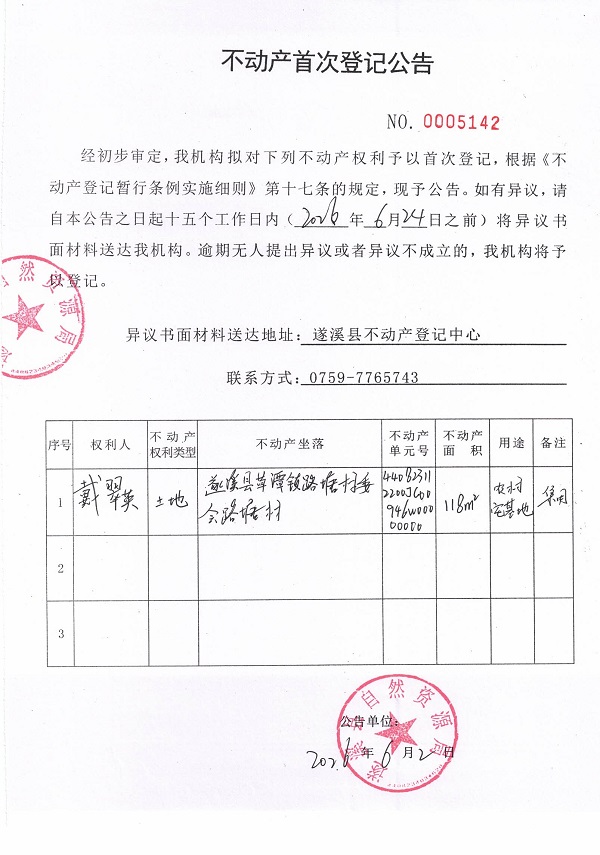 不动产首次登记公告
NO. 0005142
经初步审定，我机构拟对下列不动产权利予以首次登记，根据《不
动产登记暂行条例实施细则》第十七条的规定，现予公告。如有异议，请
自本公告之日起十五个工作日内（2026年6月24日之前）将异议书
面材料送达我机构。逾期无人提出异议或者异议不成立的，我机构将予
以登记。
异议书面材料送达地址：遂溪县不动产登记中心
联系方式：0759-7765743
序号 权利人 不动产权利类型 不动产坐落 不动产单元号 不动产面积 用途 备注
1 戴翠英 土地 遂溪县草潭镇路塘村委会路塘村 118m² 农村宅基地 集团
2
3
公告单位：
2026年6月2日
遂溪县自然资源局
自然资源局